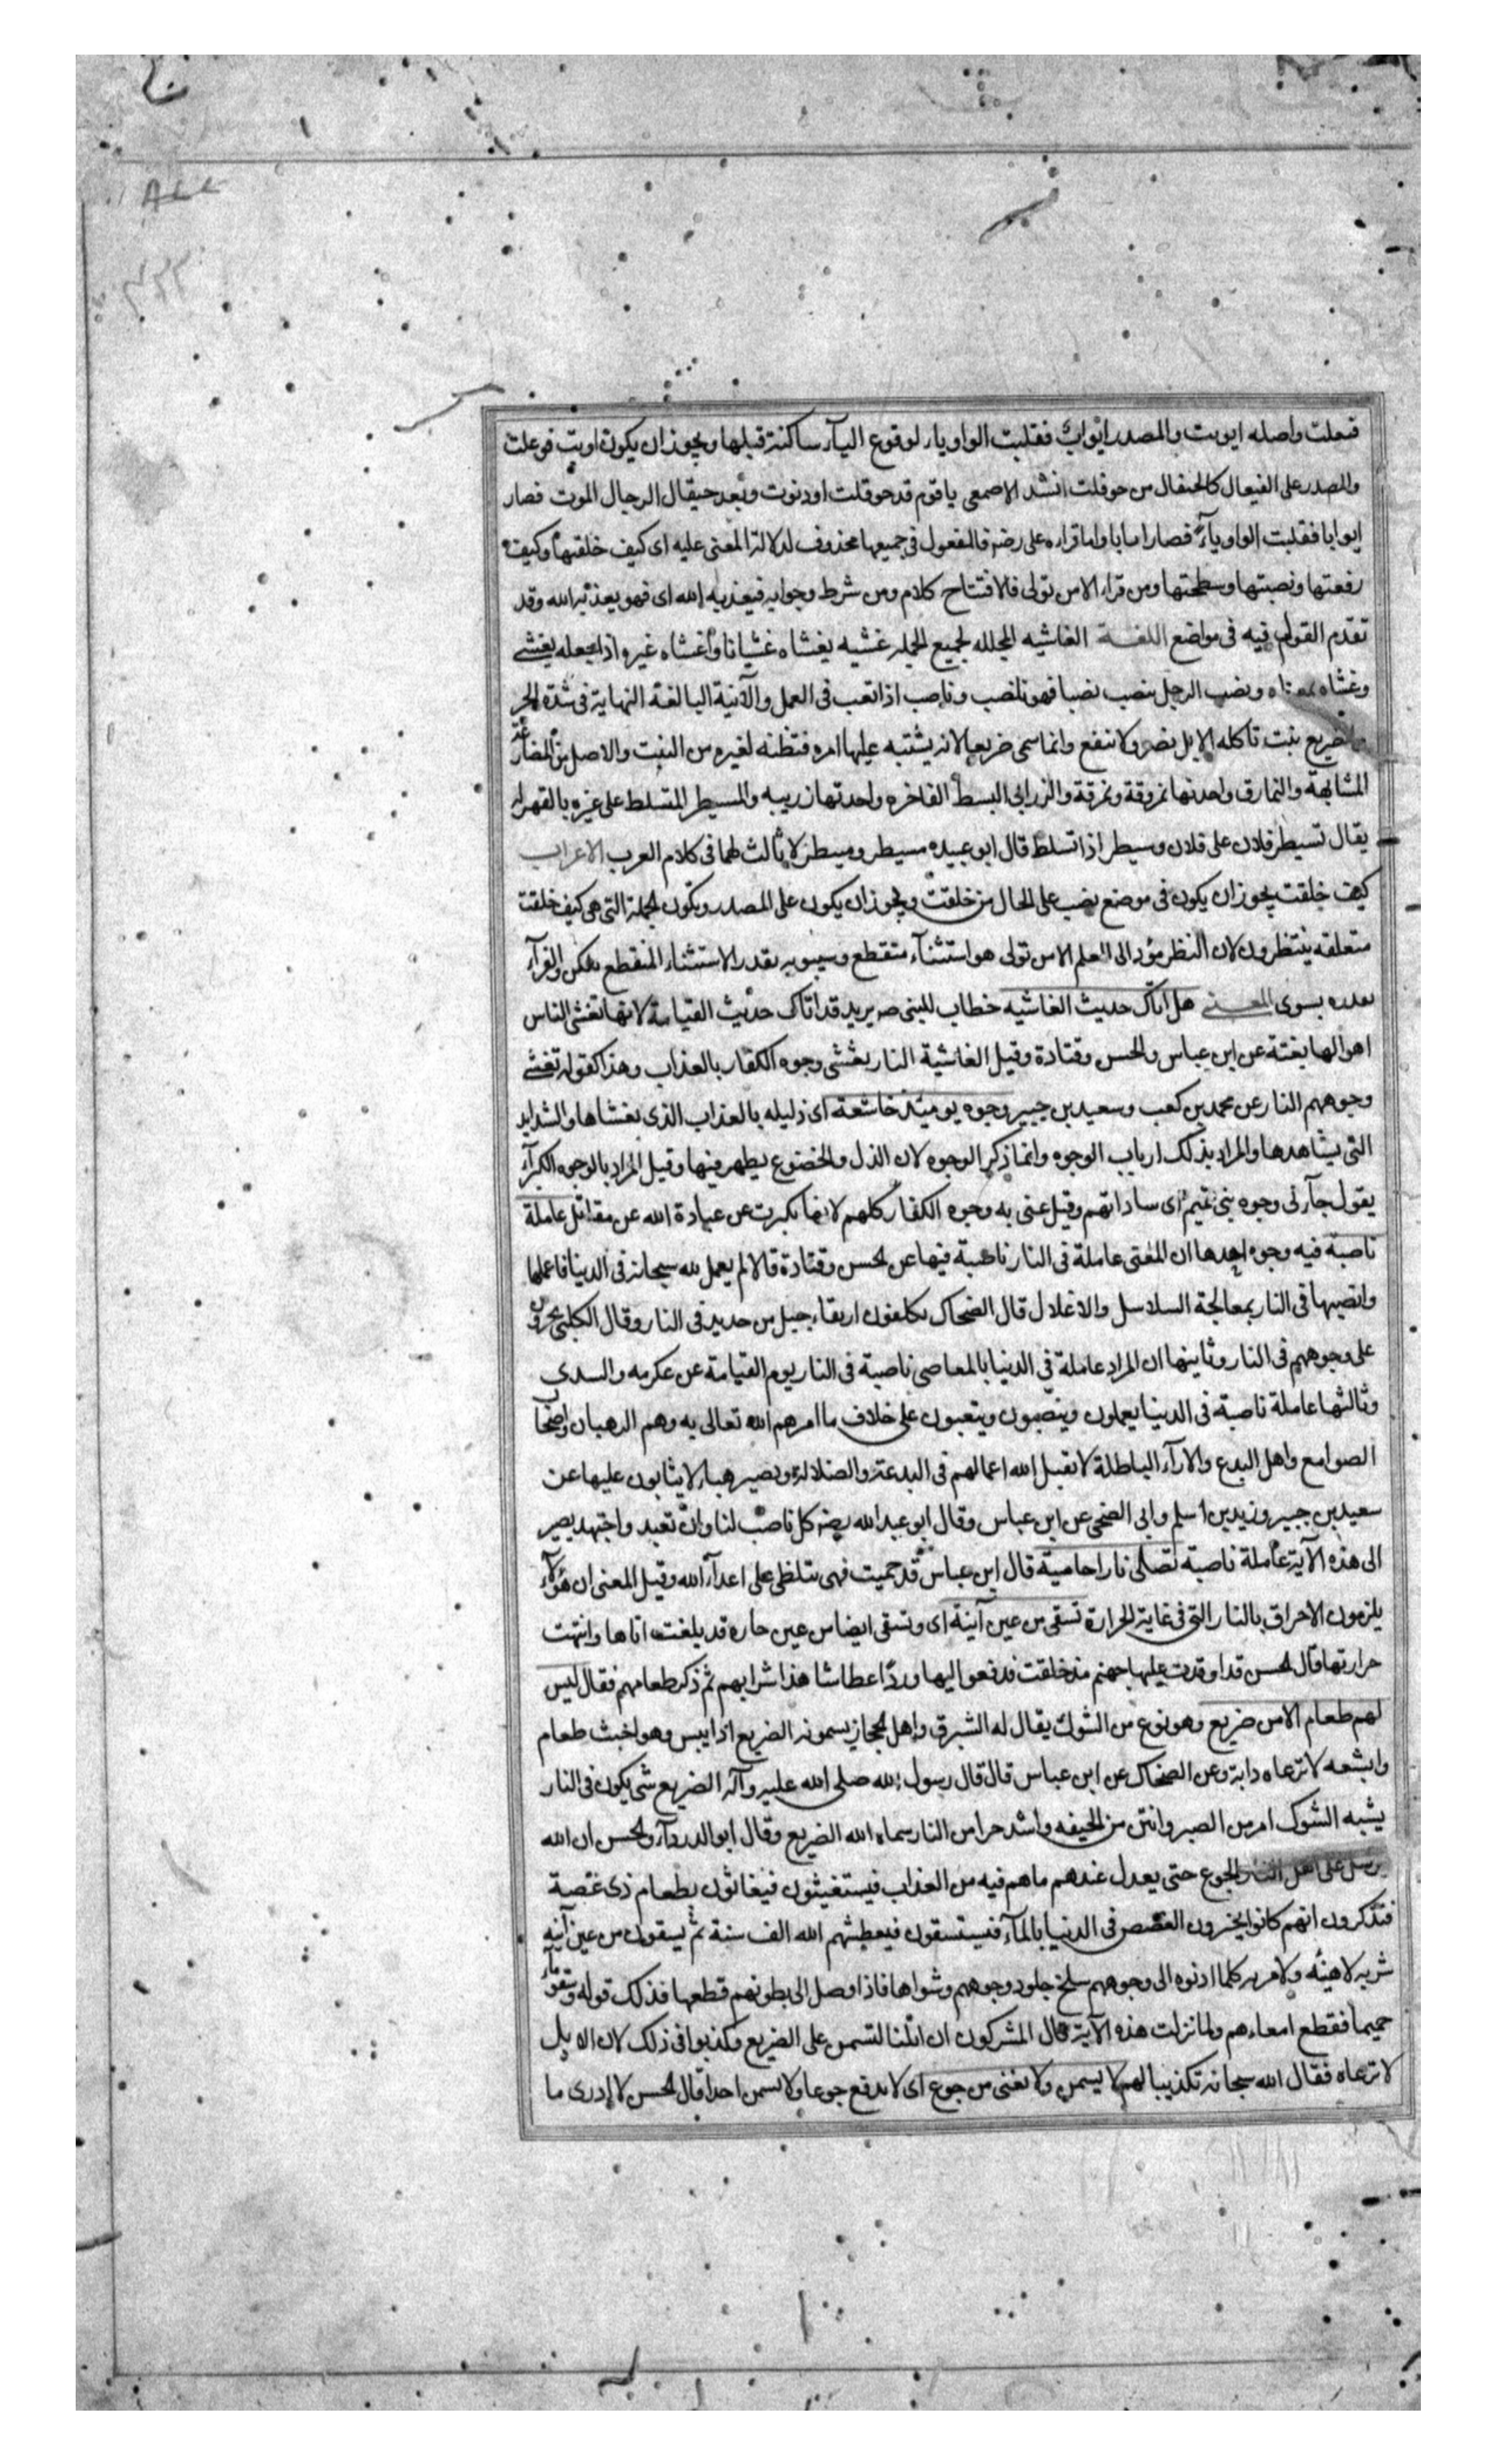 فعلت واصله ايوبت والمصدر ايواب فقلبت الواو ياء لوقوع الياء ساكنة قبلها ويجوز ان يكون اوبت فوعلت
والمصدر على الفيعال كالحيقال من حوقلت انشد الاصمعى يا قوم قد حوقلت او دنوت وبعد حيقال الرجال الموت فصار
ايوابا فقلبت الواو ياء فصار ايابا واما قراءه على رضه فالمفعول فى جميعها محذوف لدلالة المعنى عليه اى كيف خلقتها وكيف
رفعتها ونصبتها وسطحتها ومن قراء الا من تولى فالا افتتاح كلام ومن شرط وجوابه فيعذبه الله اى فهو يعذبه الله وقد
تقدم القول فيه فى مواضع اللغـــة الغاشيه المجلله لجميع الجمله غشيه يغشاه غشيانا واغشاه غيره اذا جعله يغشى
وغشاه بمعناه ونصب الرجل ينصب نصبا فهو نصب وناصب اذا تعب فى العمل والآنية البالغة النهاية فى شدة الحر
والضريع نبت تاكله الابل يضر ولا ينفع وانما سمى ضريعا لانه يشتبه عليها امره فتظنه لغيره من النبت والاصل من المضارعة
المشابهة والنمارق واحدتها نمروقة ونمرقة والزرابى البسط الفاخره واحدتها زريبه والمسيطر المتسلط على غيره بالقهر له
يقال تسيطر فلان على فلان وسيطر اذا تسلط قال ابو عبيده مسيطر ومبيطر لا ثالث لهما فى كلام العرب الاعراب
كيف خلقت يجوز ان يكون فى موضع نصب على الحال من خلقت ويجوز ان يكون على المصدر وتكون الجملة التى هى كيف خلقت
متعلقه بينظرون لان النظر مؤد الى العلم الا من تولى هو استثناء منقطع وسيبويه يقدر الاستثناء المنقطع بلكن والفراء
يقدره بسوى المعــنى هل اتاك حديث الغاشيه خطاب للنبى صه يريد قد اتاك حديث القيامة لانها تغشى الناس
اهوالها بغتة عن ابن عباس والحسن وقتادة وقيل الغاشية النار يغشى وجوه الكفار بالعذاب وهذا كقوله تغشى
وجوههم النار عن محمد بن كعب وسعيد بن جبير وجوه يومئذ خاشعة اى ذليله بالعذاب الذى يغشاها والشدايد
التى يشاهدها والمراد بذلك ارباب الوجوه وانما ذكر الوجوه لان الذل والخضوع يظهر فيها وقيل المراد بالوجوه الكبراء
يقول جاءنى وجوه بنى تميم اى ساداتهم وقيل عنى به وجوه الكفار كلهم لانها تكبرت عن عبادة الله عن مقاتل عاملة
ناصبة فيه وجوه احدها ان المعنى عاملة فى النار ناصبة فيها عن الحسن وقتادة قالا لم يعمل لله سبحانه فى الدنيا فاعملها
وانصبها فى النار بمعالجة السلاسل والاغلال قال الضحاك يكلفون ارتقاء جبل من حديد فى النار وقال الكلبى يجرون
على وجوههم فى النار وثانيها ان المراد عاملة فى الدنيا بالمعاصى ناصبة فى النار يوم القيامة عن عكرمه والسدى
وثالثها عاملة ناصبة فى الدنيا يعملون وينصبون ويتعبون على خلاف ما امرهم الله تعالى به وهم الرهبان واصحاب
الصوامع واهل البدع والاراء الباطلة لا يقبل الله اعمالهم فى البدعة والضلالة ويصير هباء لا يثابون عليها عن
سعيد بن جبير وزيد بن اسلم وابى الضحى عن ابن عباس وقال ابو عبد الله رضه كل ناصب لنا وان تعبد واجتهد يصير
الى هذه الآية عاملة ناصبة تصلى نارا حامية قال ابن عباس قد حميت فهى تتلظى على اعداء الله وقيل المعنى ان هؤلاء
يلزمون الاحراق بالنار التى فى غاية الحرارة تسقى من عين آنية اى وتسقى ايضا من عين حاره قد بلغت اناها وانتهت
حرارتها قال الحسن قد اوقدت عليها جهنم مذ خلقت فدفعوا اليها وردا عطاشا هذا شرابهم ثم ذكر طعامهم فقال ليس
لهم طعام الا من ضريع وهو نوع من الشوك يقال له الشبرق واهل الحجاز يسمونه الضريع اذا يبس وهو اخبث طعام
وابشعه لا ترعاه دابة وعن الضحاك عن ابن عباس قال قال رسول الله صلى الله عليه وآله الضريع شى يكون فى النار
يشبه الشوك امر من الصبر وانتن من الجيفه واشد حرا من النار سماه الله الضريع وقال ابو الدرداء والحسن ان الله
يرسل على اهل النار الجوع حتى يعدل عندهم ما هم فيه من العذاب فيستغيثون فيغاثون بطعام ذى غصة
فتذكرون انهم كانوا يجيزون الغصص فى الدنيا بالماء فيستسقون فيعطشهم الله الف سنة ثم يسقون من عين آنيه
شربه لا هنيئه ولا مريه كلما ادنوه الى وجوههم سلخ جلود وجوههم وشواها فاذا وصل الى بطونهم قطعها فذلك قوله وسقوا ماء
حميما فقطع امعاءهم ولما نزلت هذه الآية قال المشركون ان ابلنا لتسمن على الضريع وكذبوا فى ذلك لان الابل
لا ترعاه فقال الله سبحانه تكذيبا لهم لا يسمن ولا يغنى من جوع اى لا يدفع جوعا ولا يسمن احدا قال الحسن لا ادرى ما